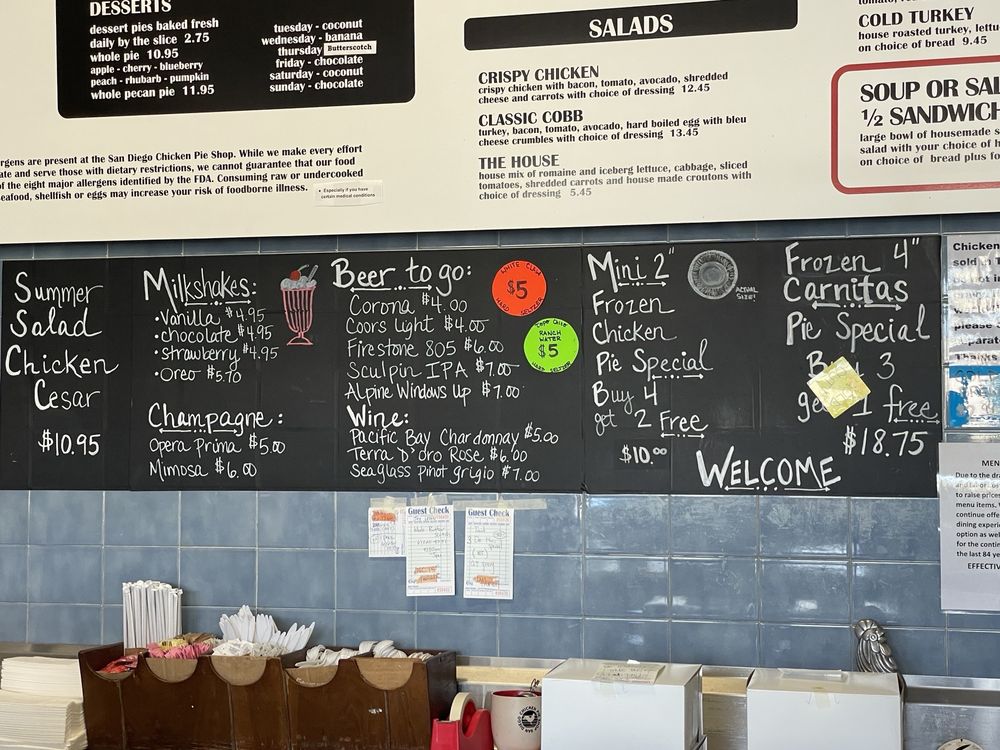 DESSERTS
dessert pies baked fresh
daily by the slice 2.75
whole pie 10.95
apple - cherry - blueberry
peach - rhubarb - pumpkin
whole pecan pie 11.95
tuesday - coconut
wednesday - banana
thursday Butterscotch
friday - chocolate
saturday - coconut
sunday - chocolate
rgens are present at the San Diego Chicken Pie Shop. While we make every effort
ate and serve those with dietary restrictions, we cannot guarantee that our food
of the eight major allergens identified by the FDA. Consuming raw or undercooked
eafood, shellfish or eggs may increase your risk of foodborne illness.
• Especially if you have
certain medical conditions
SALADS
CRISPY CHICKEN
crispy chicken with bacon, tomato, avocado, shredded
cheese and carrots with choice of dressing 12.45
CLASSIC COBB
turkey, bacon, tomato, avocado, hard boiled egg with bleu
cheese crumbles with choice of dressing 13.45
THE HOUSE
house mix of romaine and iceberg lettuce, cabbage, sliced
tomatoes, shredded carrots and house made croutons with
choice of dressing 5.45
COLD TURKEY
house roasted turkey, lettu
on choice of bread 9.45
SOUP OR SAL
½ SANDWICH
large bowl of housemade s
salad with your choice of h
on choice of bread plus fo
Summer
Salad
Chicken
Cesar
$10.95
Milkshakes:
• Vanilla $4.95
• chocolate $4.95
• strawberry $4.95
• Oreo $5.70
Champagne:
Opera Prima $5.00
Mimosa $6.00
Beer to go:
Corona $4.00
Coors Light $4.00
Firestone 805 $6.00
Sculpin IPA $7.00
Alpine Windows Up $7.00
Wine:
Pacific Bay Chardonnay $5.00
Terra D'oro Rose $6.00
Seaglass Pinot grigio $7.00
WHITE CLAW
$5
HARD SELTZER
RANCH
WATER
$5
HARD SELTZER
Mini 2"
Frozen
Chicken
Pie Special
Buy 4
get 2 Free
$10.00
ACTUAL
SIZE!
Frozen 4"
Carnitas
Pie Special
3
1 free
$18.75
WELCOME
Guest Check
Guest Check
Chicken
sold in
please
Thanks
MEN
Due to the dra
to raise price
menu items.
continue offe
dining experi
option as wel
for the contin
the last 84 ye
EFFECTIV